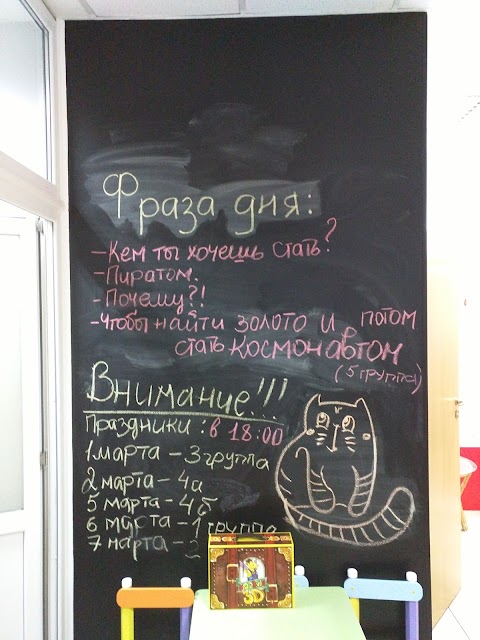 Фраза дня:
-Кем ты хочешь стать?
-Пиратом.
-Почему?!
-Чтобы найти золото и потом
стать космонавтом
(5 группа)
Внимание!!!
Праздники: в 18:00
1 марта - 3 группа
2 марта - 4а
5 марта - 4б
6 марта - 1 группа
7 марта - 2
3D